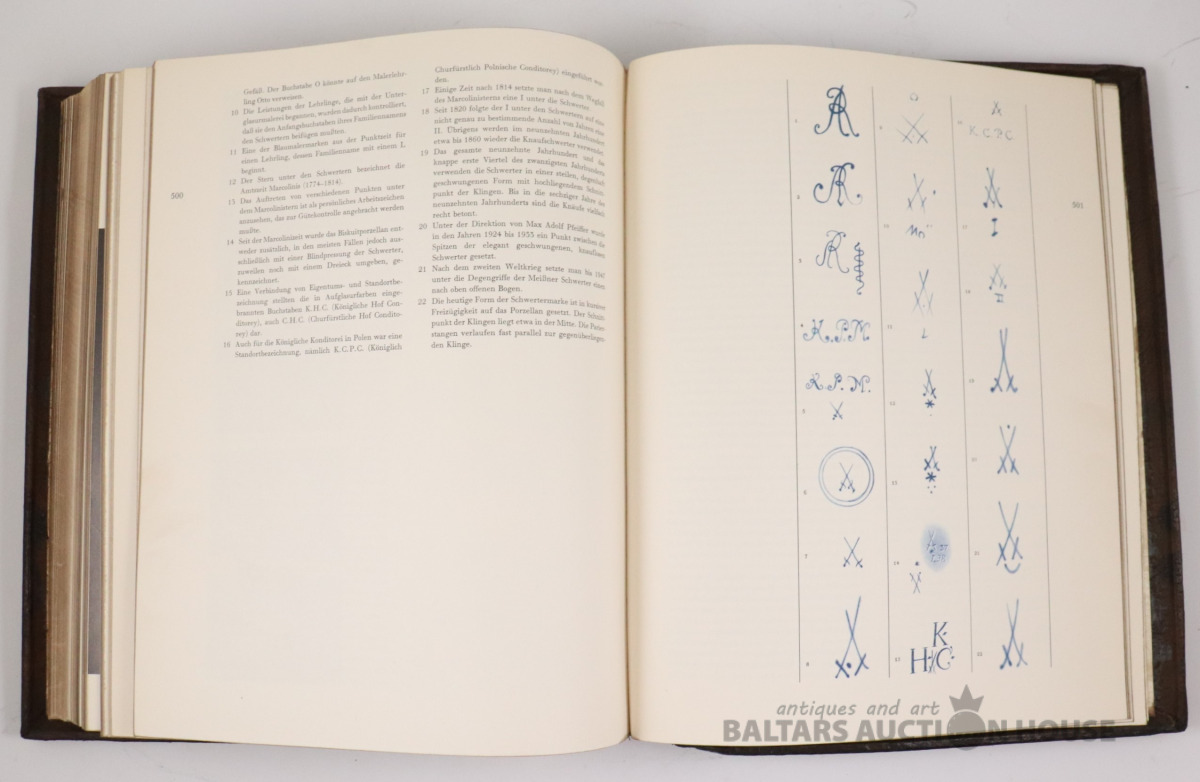 Gefäß. Der Buchstabe O könnte auf den Malerlehr-
ling Otto verweisen.
10 Die Leistungen der Lehrlinge, die mit der Unter-
glasurmalerei begannen, wurden dadurch kontrolliert,
daß sie den Anfangsbuchstaben ihres Familiennamens
den Schwertern beifügen mußten.
11 Eine der Blaumalermarken aus der Punktzeit für
einen Lehrling, dessen Familienname mit einem L
beginnt.
12 Der Stern unter den Schwertern bezeichnet die
Amtszeit Marcolinis (1774–1814).
13 Das Auftreten von verschiedenen Punkten unter
dem Marcolinistern ist als persönliches Arbeitszeichen
anzusehen, das zur Gütekontrolle angebracht werden
mußte.
14 Seit der Marcolinizeit wurde das Biskuitporzellan ent-
weder zusätzlich, in den meisten Fällen jedoch aus-
schließlich mit einer Blindpressung der Schwerter,
zuweilen noch mit einem Dreieck umgeben, ge-
kennzeichnet.
15 Eine Verbindung von Eigentums- und Standortbe-
zeichnung stellten die in Aufglasurfarben einge-
brannten Buchstaben K.H.C. (Königliche Hof Con-
ditorey), auch C.H.C. (Churfürstliche Hof Condito-
rey) dar.
16 Auch für die Königliche Konditorei in Polen war eine
Standortbezeichnung, nämlich K.C.P.C. (Königlich
500
Churfürstlich Polnische Conditorey) eingeführt wor-
den.
17 Einige Zeit nach 1814 setzte man nach dem Wegfall
des Marcolinisterns eine I unter die Schwerter.
18 Seit 1820 folgte der I unter den Schwertern auf eine
nicht genau zu bestimmende Anzahl von Jahren eine
II. Übrigens werden im neunzehnten Jahrhundert
etwa bis 1860 wieder die Knaufschwerter verwendet.
19 Das gesamte neunzehnte Jahrhundert und das
knappe erste Viertel des zwanzigsten Jahrhunderts
verwenden die Schwerter in einer steilen, degenhaft
geschwungenen Form mit hochliegendem Schnitt-
punkt der Klingen. Bis in die sechziger Jahre des
neunzehnten Jahrhunderts sind die Knäufe vielfach
recht betont.
20 Unter der Direktion von Max Adolf Pfeiffer wurde
in den Jahren 1924 bis 1933 ein Punkt zwischen die
Spitzen der elegant geschwungenen, knauflosen
Schwerter gesetzt.
21 Nach dem zweiten Weltkrieg setzte man bis 1947
unter die Degengriffe der Meißner Schwerter einen
nach oben offenen Bogen.
22 Die heutige Form der Schwertermarke ist in kurviger
Freizügigkeit auf das Porzellan gesetzt. Der Schnitt-
punkt der Klingen liegt etwa in der Mitte. Die Parier-
stangen verlaufen fast parallel zur gegenüberliegen-
den Klinge.
AR
AR
AR
K.P.M.
K.P.M.
5
6
7
8
12
13
14
15
K.
H.C.
K.C.P.C.
I
II
L
19
501
antiques and art
BALTARS AUCTION HOUSE